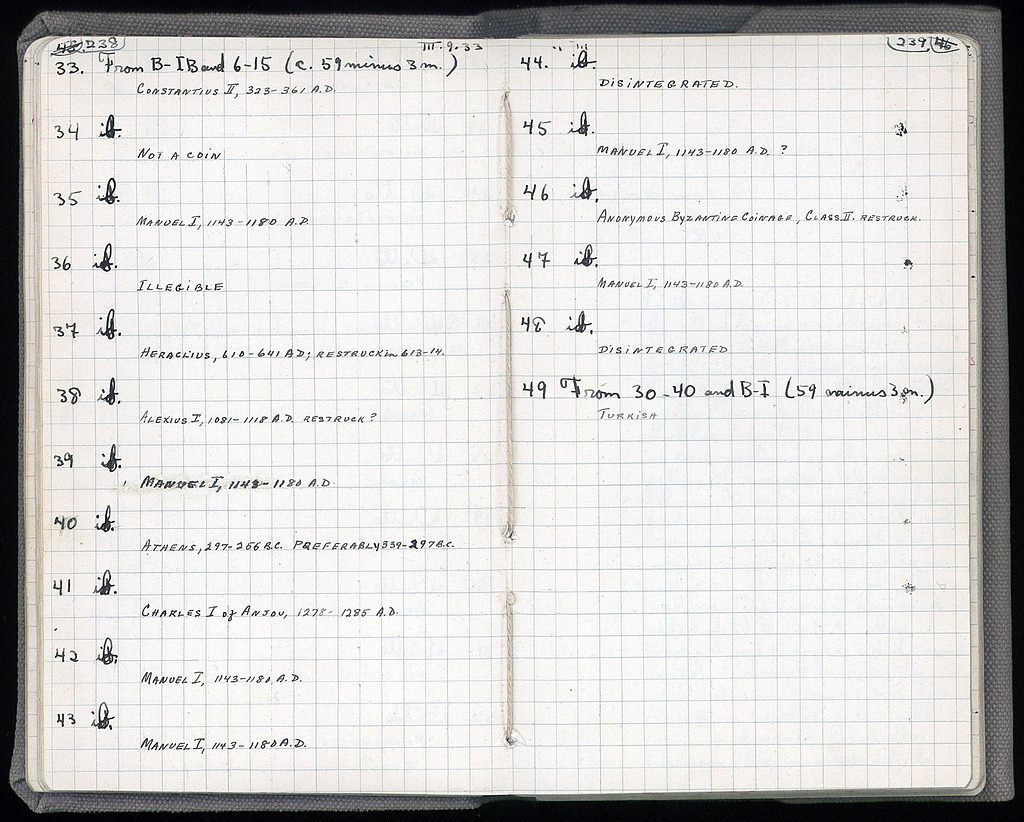 238
III·9·33
33. From B-I B and 6-15 (c. 59 minus 3 m.)
CONSTANTIUS II, 323-361 A.D.
34 ib.
NOT A COIN
35 ib.
MANUEL I, 1143-1180 A.D.
36 ib.
ILLEGIBLE
37 ib.
HERACLIUS, 610-641 AD; RESTRUCK in 613-14.
38 ib.
ALEXIUS I, 1081-1118 A.D. RESTRUCK?
39 ib.
MANUEL I, 1143-1180 A.D.
40 ib.
ATHENS, 297-256 B.C. PREFERABLY 339-297 B.C.
41 ib.
CHARLES I of ANJOU, 1278-1285 A.D.
42 ib.
MANUEL I, 1143-1180 A.D.
43 ib.
MANUEL I, 1143-1180 A.D.
" III
239 46
44. ib.
DISINTEGRATED.
45 ib.
MANUEL I, 1143-1180 A.D. ?
46 ib.
ANONYMOUS BYZANTINE COINAGE, CLASS II. RESTRUCK.
47 ib.
MANUEL I, 1143-1180 A.D.
48 ib.
DISINTEGRATED
49 From 30-40 and B-I (59 minus 3 m.)
TURKISH